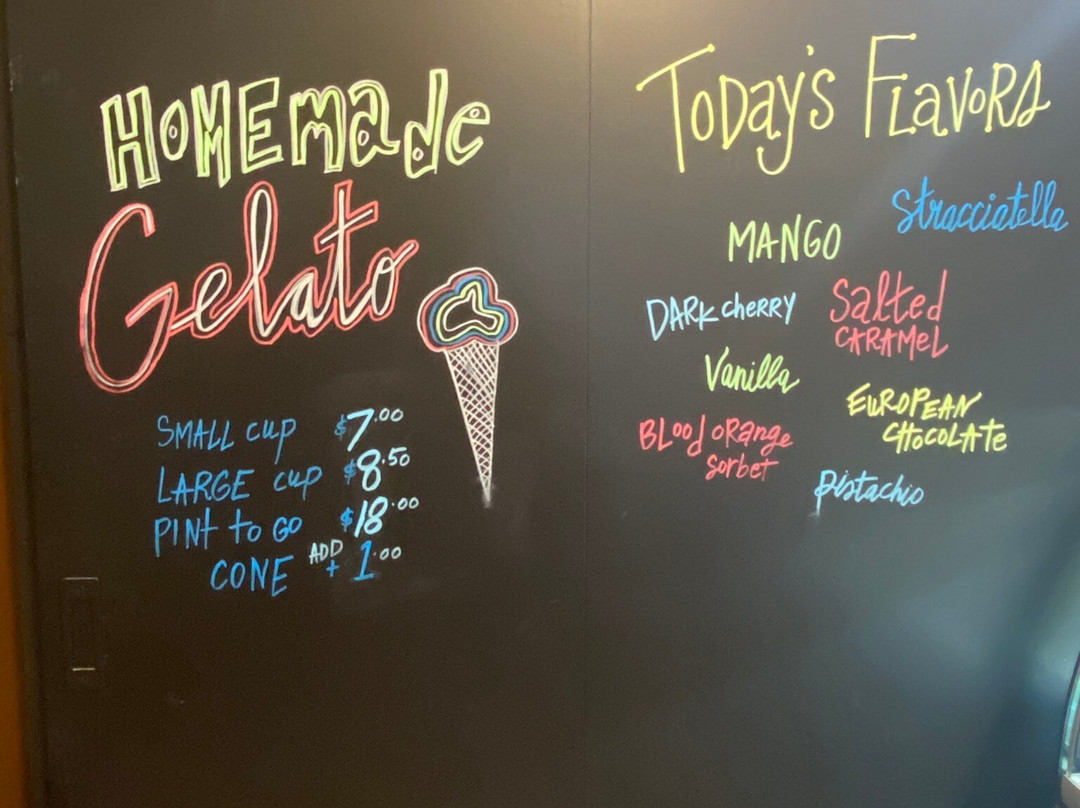 HOMEmade
Gelato
SMALL cup $7.00
LARGE cup $8.50
PINt to GO $18.00
CONE ADD + 1.00
Today's Flavors
Stracciatella
MANGO
DARK cherry
Salted
CARAMeL
Vanilla
EUROPEAN
CHOCOLATe
BLood oRange
sorbet
pistachio